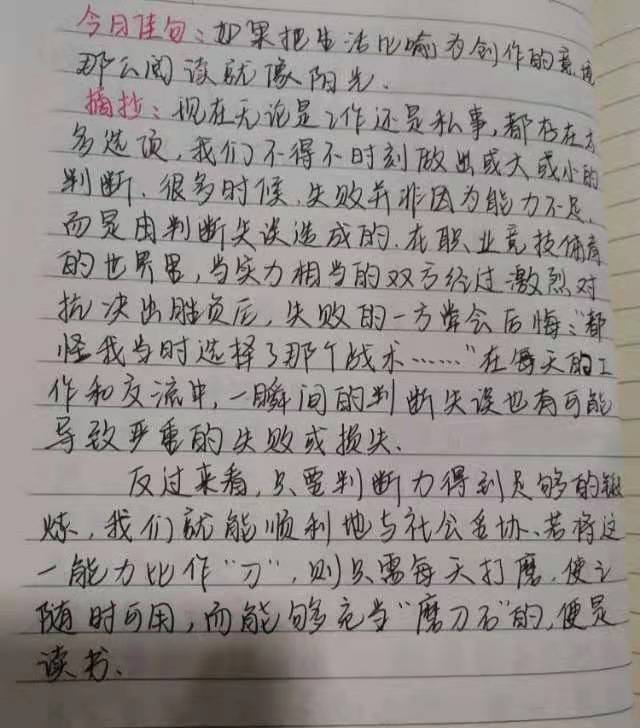 今日佳句：如果把生活比喻为创作的意境
那么阅读就像阳光.
摘抄：现在无论是工作还是私事，都存在太
多选项，我们不得不时刻做出或大或小的
判断.很多时候，失败并非因为能力不足，
而是由判断失误造成的.在职业竞技体育
的世界里，当实力相当的双方经过激烈对
抗决出胜负后，失败的一方常会后悔：“都
怪我当时选择了那个战术……”在每天的工
作和交流中，一瞬间的判断失误也有可能
导致严重的失败或损失.
反过来看，只要判断力得到足够的锻
炼，我们就能顺利地与社会妥协.若将这
一能力比作“刀”，则只需每天打磨，使之
随时可用，而能够充当“磨刀石”的，便是
读书.